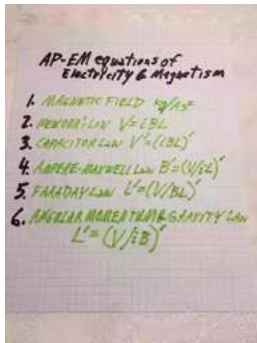 AP-EM equations of
Electricity & Magnetism
1. MAGNETIC FIELD kg/As²
2. NEW OHM Law V=iBL
3. CAPACITOR Law V'=(iBL)'
4. AMPERE-MAXWELL Law B'=(V/iL)'
5. FARADAY Law i'=(V/BL)'
6. ANGULAR MOMENTUM & GRAVITY LAW
L'=(V/iB)'